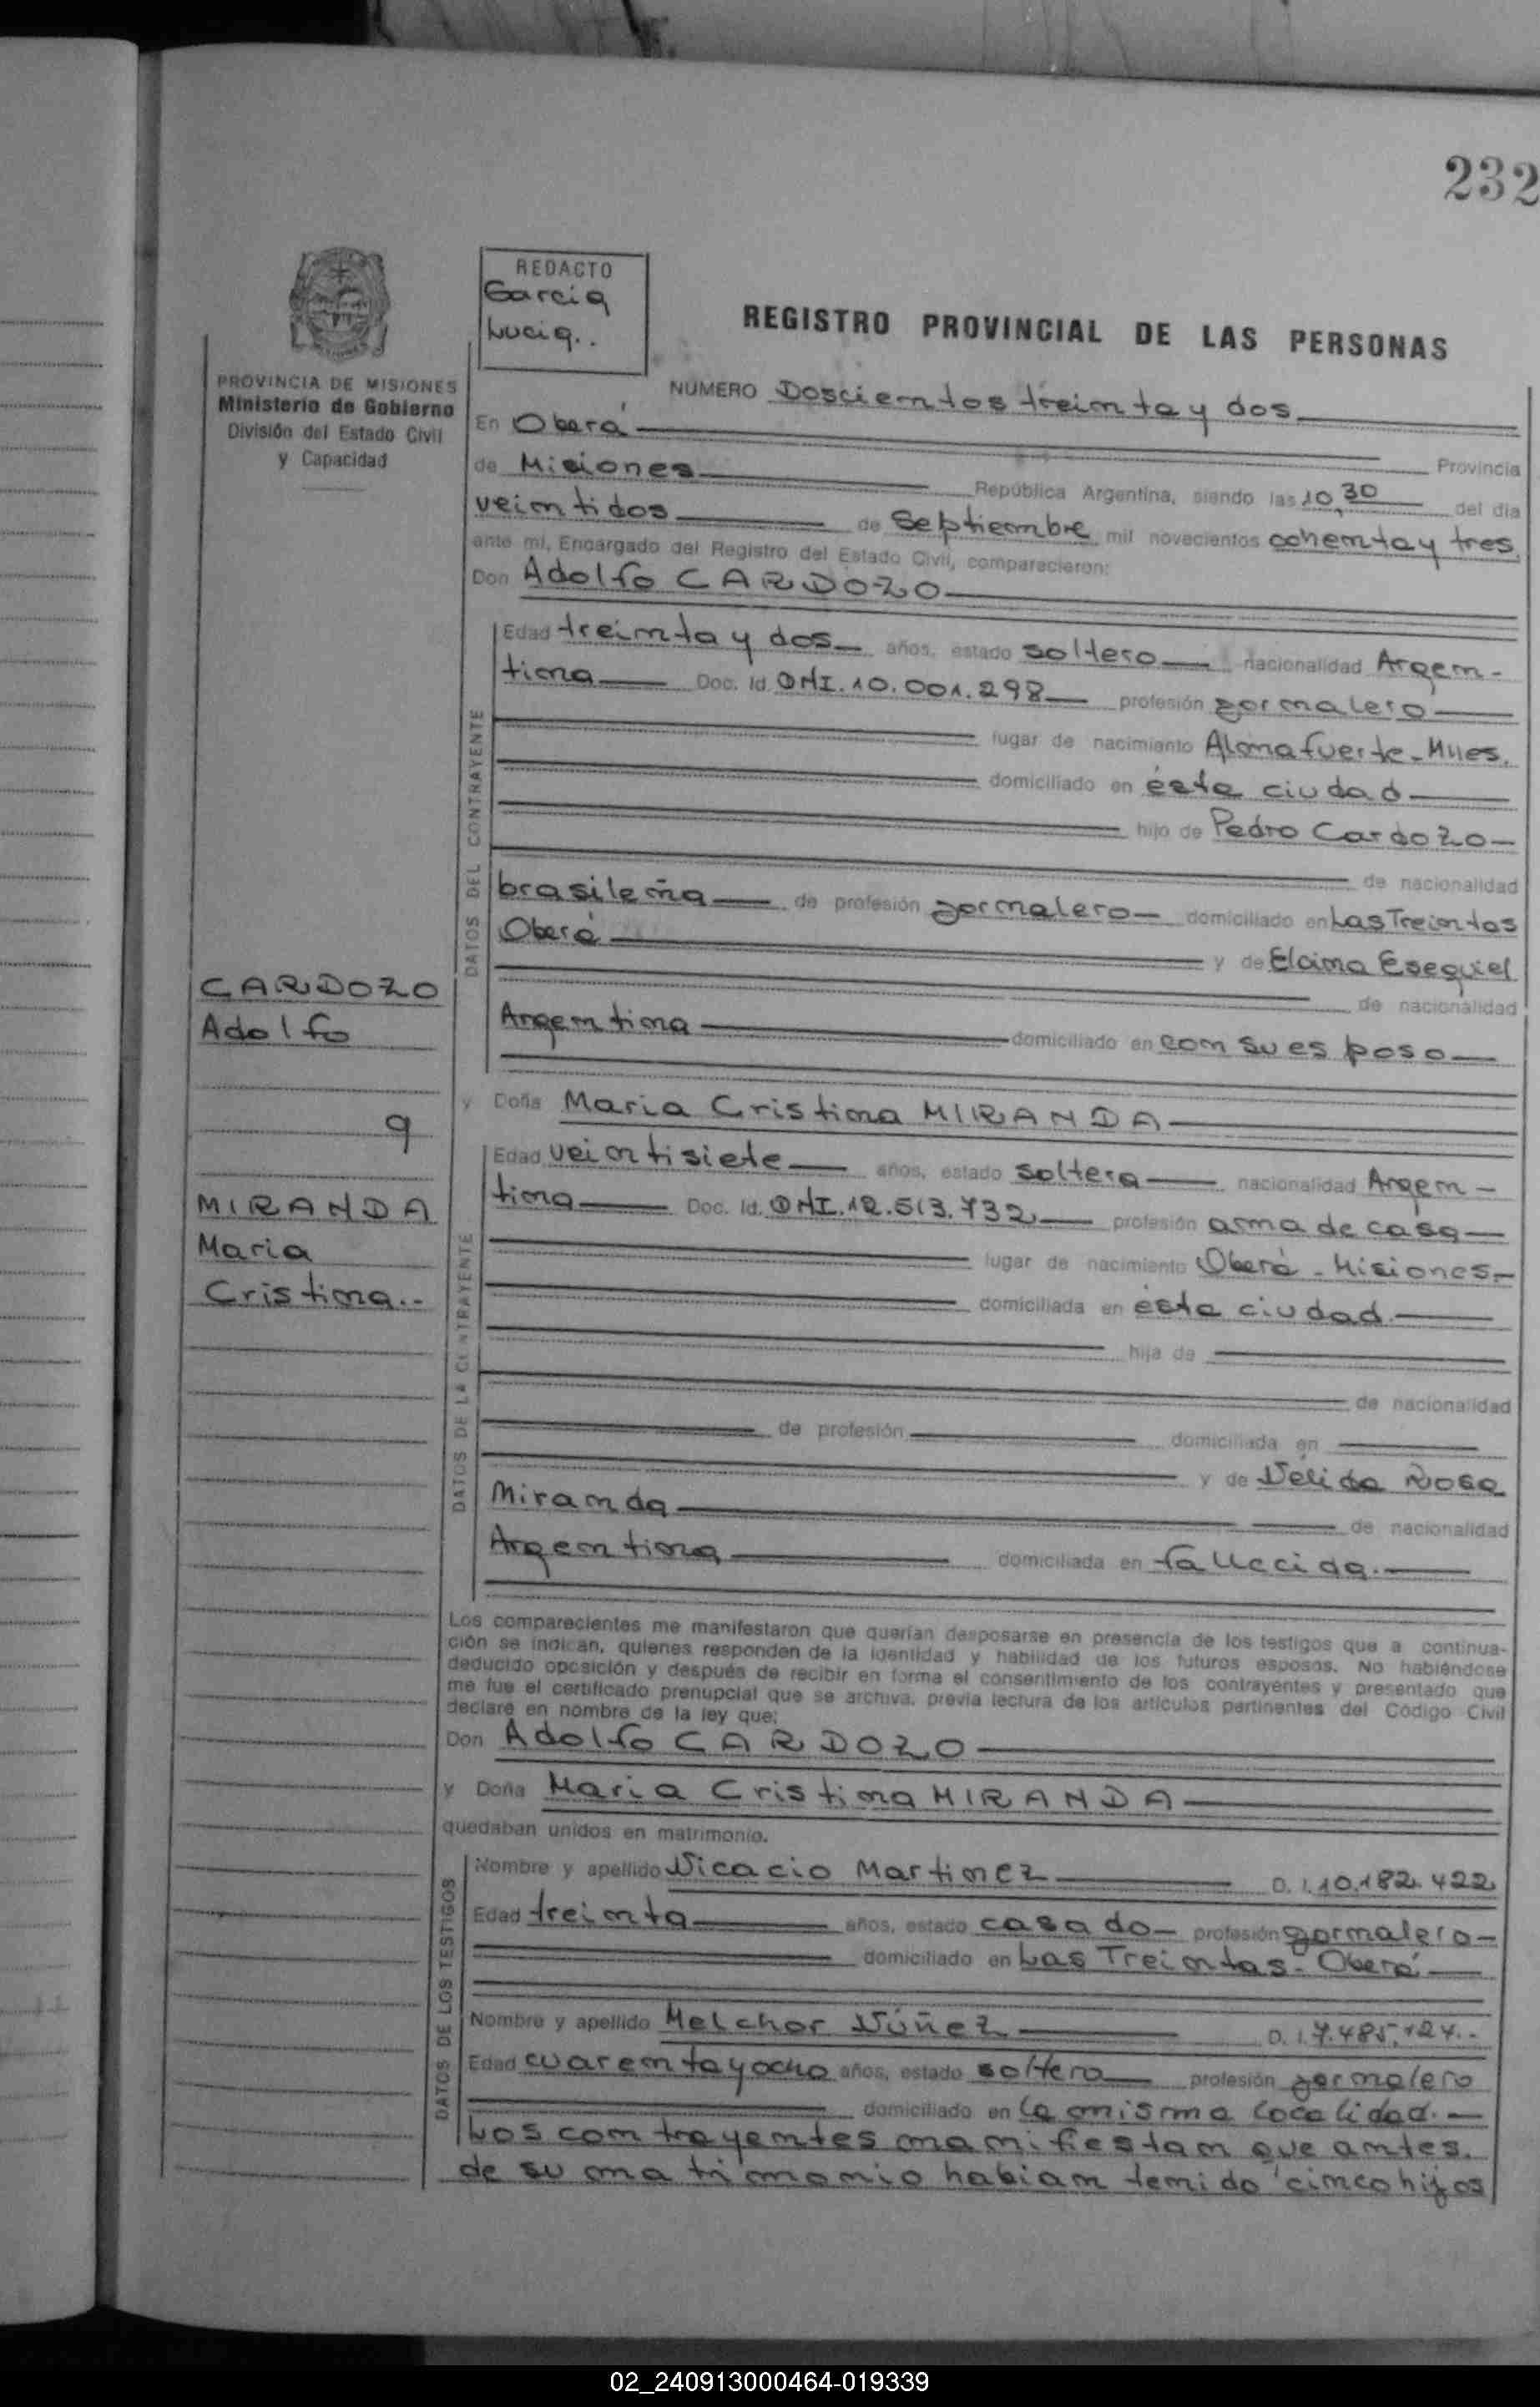 232
REDACTO
Garcia
Lucia..
REGISTRO PROVINCIAL DE LAS PERSONAS
PROVINCIA DE MISIONES
Ministerio de Gobierno
División del Estado Civil
y Capacidad
NUMERO Doscientos treinta y dos
En Oberá
Provincia
de Misiones República Argentina, siendo las 10,30 del día
veintidos de Septiembre mil novecientos ochenta y tres,
ante mi, Encargado del Registro del Estado Civil, comparecieron:
Don Adolfo CARDOZO
DATOS DEL CONTRAYENTE
Edad treinta y dos años, estado soltero nacionalidad Argen-
tina Doc. Id. DNI. 10.001.298 profesión jornalero
lugar de nacimiento Almafuerte-Mnes.
domiciliado en ésta ciudad
hijo de Pedro Cardozo
de nacionalidad
brasileña de profesión jornalero domiciliado en Las Treintas
Oberá y de Elcima Esequiel
de nacionalidad
Argentina domiciliado en con su esposo
CARDOZO
Adolfo
MIRANDA
Maria
Cristina..
y Doña Maria Cristina MIRANDA
DATOS DE LA CONTRAYENTE
Edad veintisiete años, estado soltera nacionalidad Argen-
tina Doc. Id. DNI. 12.513.732 profesión ama de casa
lugar de nacimiento Oberá - Misiones-
domiciliada en ésta ciudad.
hija de
de nacionalidad
de profesión domiciliada en
y de Délida Rosa
Miranda de nacionalidad
Argentina domiciliada en fallecida.
Los comparecientes me manifestaron que querían desposarse en presencia de los testigos que a continua-
ción se indican, quienes responden de la identidad y habilidad de los futuros esposos. No habiéndose
deducido oposición y después de recibir en forma el consentimiento de los contrayentes y presentado que
me fue el certificado prenupcial que se archiva, previa lectura de los artículos pertinentes del Código Civil
declaré en nombre de la ley que:
Don Adolfo CARDOZO
y Doña Maria Cristina MIRANDA
quedaban unidos en matrimonio.
DATOS DE LOS TESTIGOS
Nombre y apellido Nicacio Martinez D. I. 10.182.422
Edad treinta años, estado casado profesión jornalero
domiciliado en Las Treintas - Oberá
Nombre y apellido Melchor Núñez D. I. 7.485.124..
Edad cuarenta y ocho años, estado soltero profesión jornalero
domiciliado en la misma localidad.
Los contrayentes manifiestan que antes
de su matrimonio habian tenido cinco hijos
02_240913000464-019339